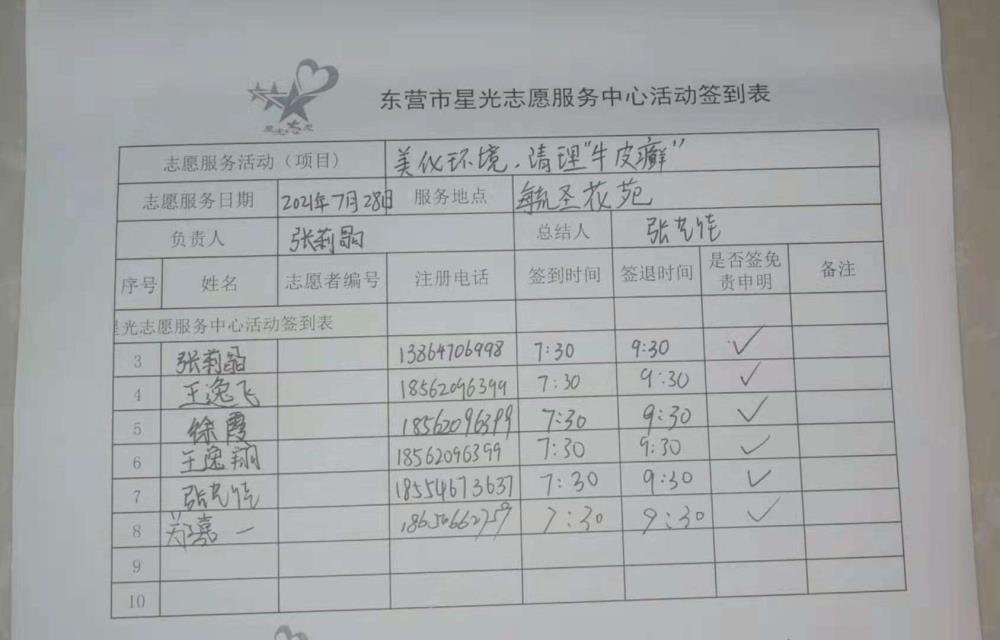 东营市星光志愿服务中心活动签到表
志愿服务活动（项目） 美化环境.清理"牛皮癣"
志愿服务日期 2021年7月28日 服务地点 毓圣花苑
负责人 张莉晶 总结人 张艺佳
序号 姓名 志愿者编号 注册电话 签到时间 签退时间 是否签免责申明 备注
星光志愿服务中心活动签到表
3 张莉晶 13864706998 7:30 9:30 ✓
4 王逸飞 18562096399 7:30 9:30 ✓
5 徐霞 18562096399 7:30 9:30 ✓
6 王逸翔 18562096399 7:30 9:30 ✓
7 张艺佳 18554673637 7:30 9:30 ✓
8 郑嘉一 7:30 9:30 ✓
9
10